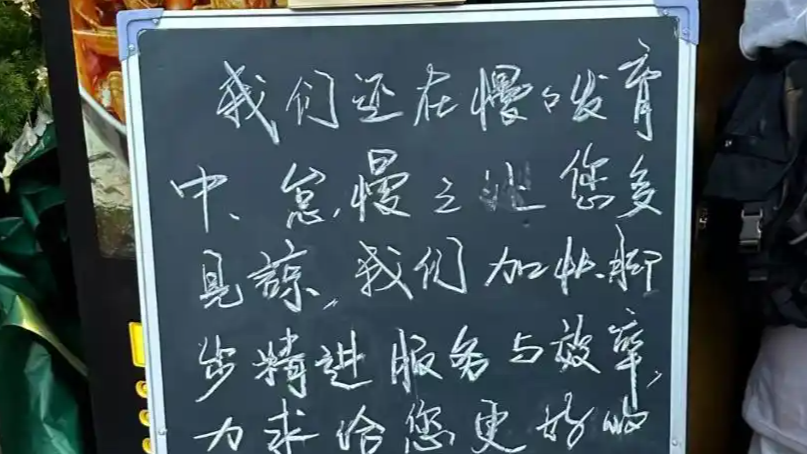 我们还在慢々发育
中、怠慢之处您多
见諒、我们加快脚
步精进服务与效率,
力求给您更好的